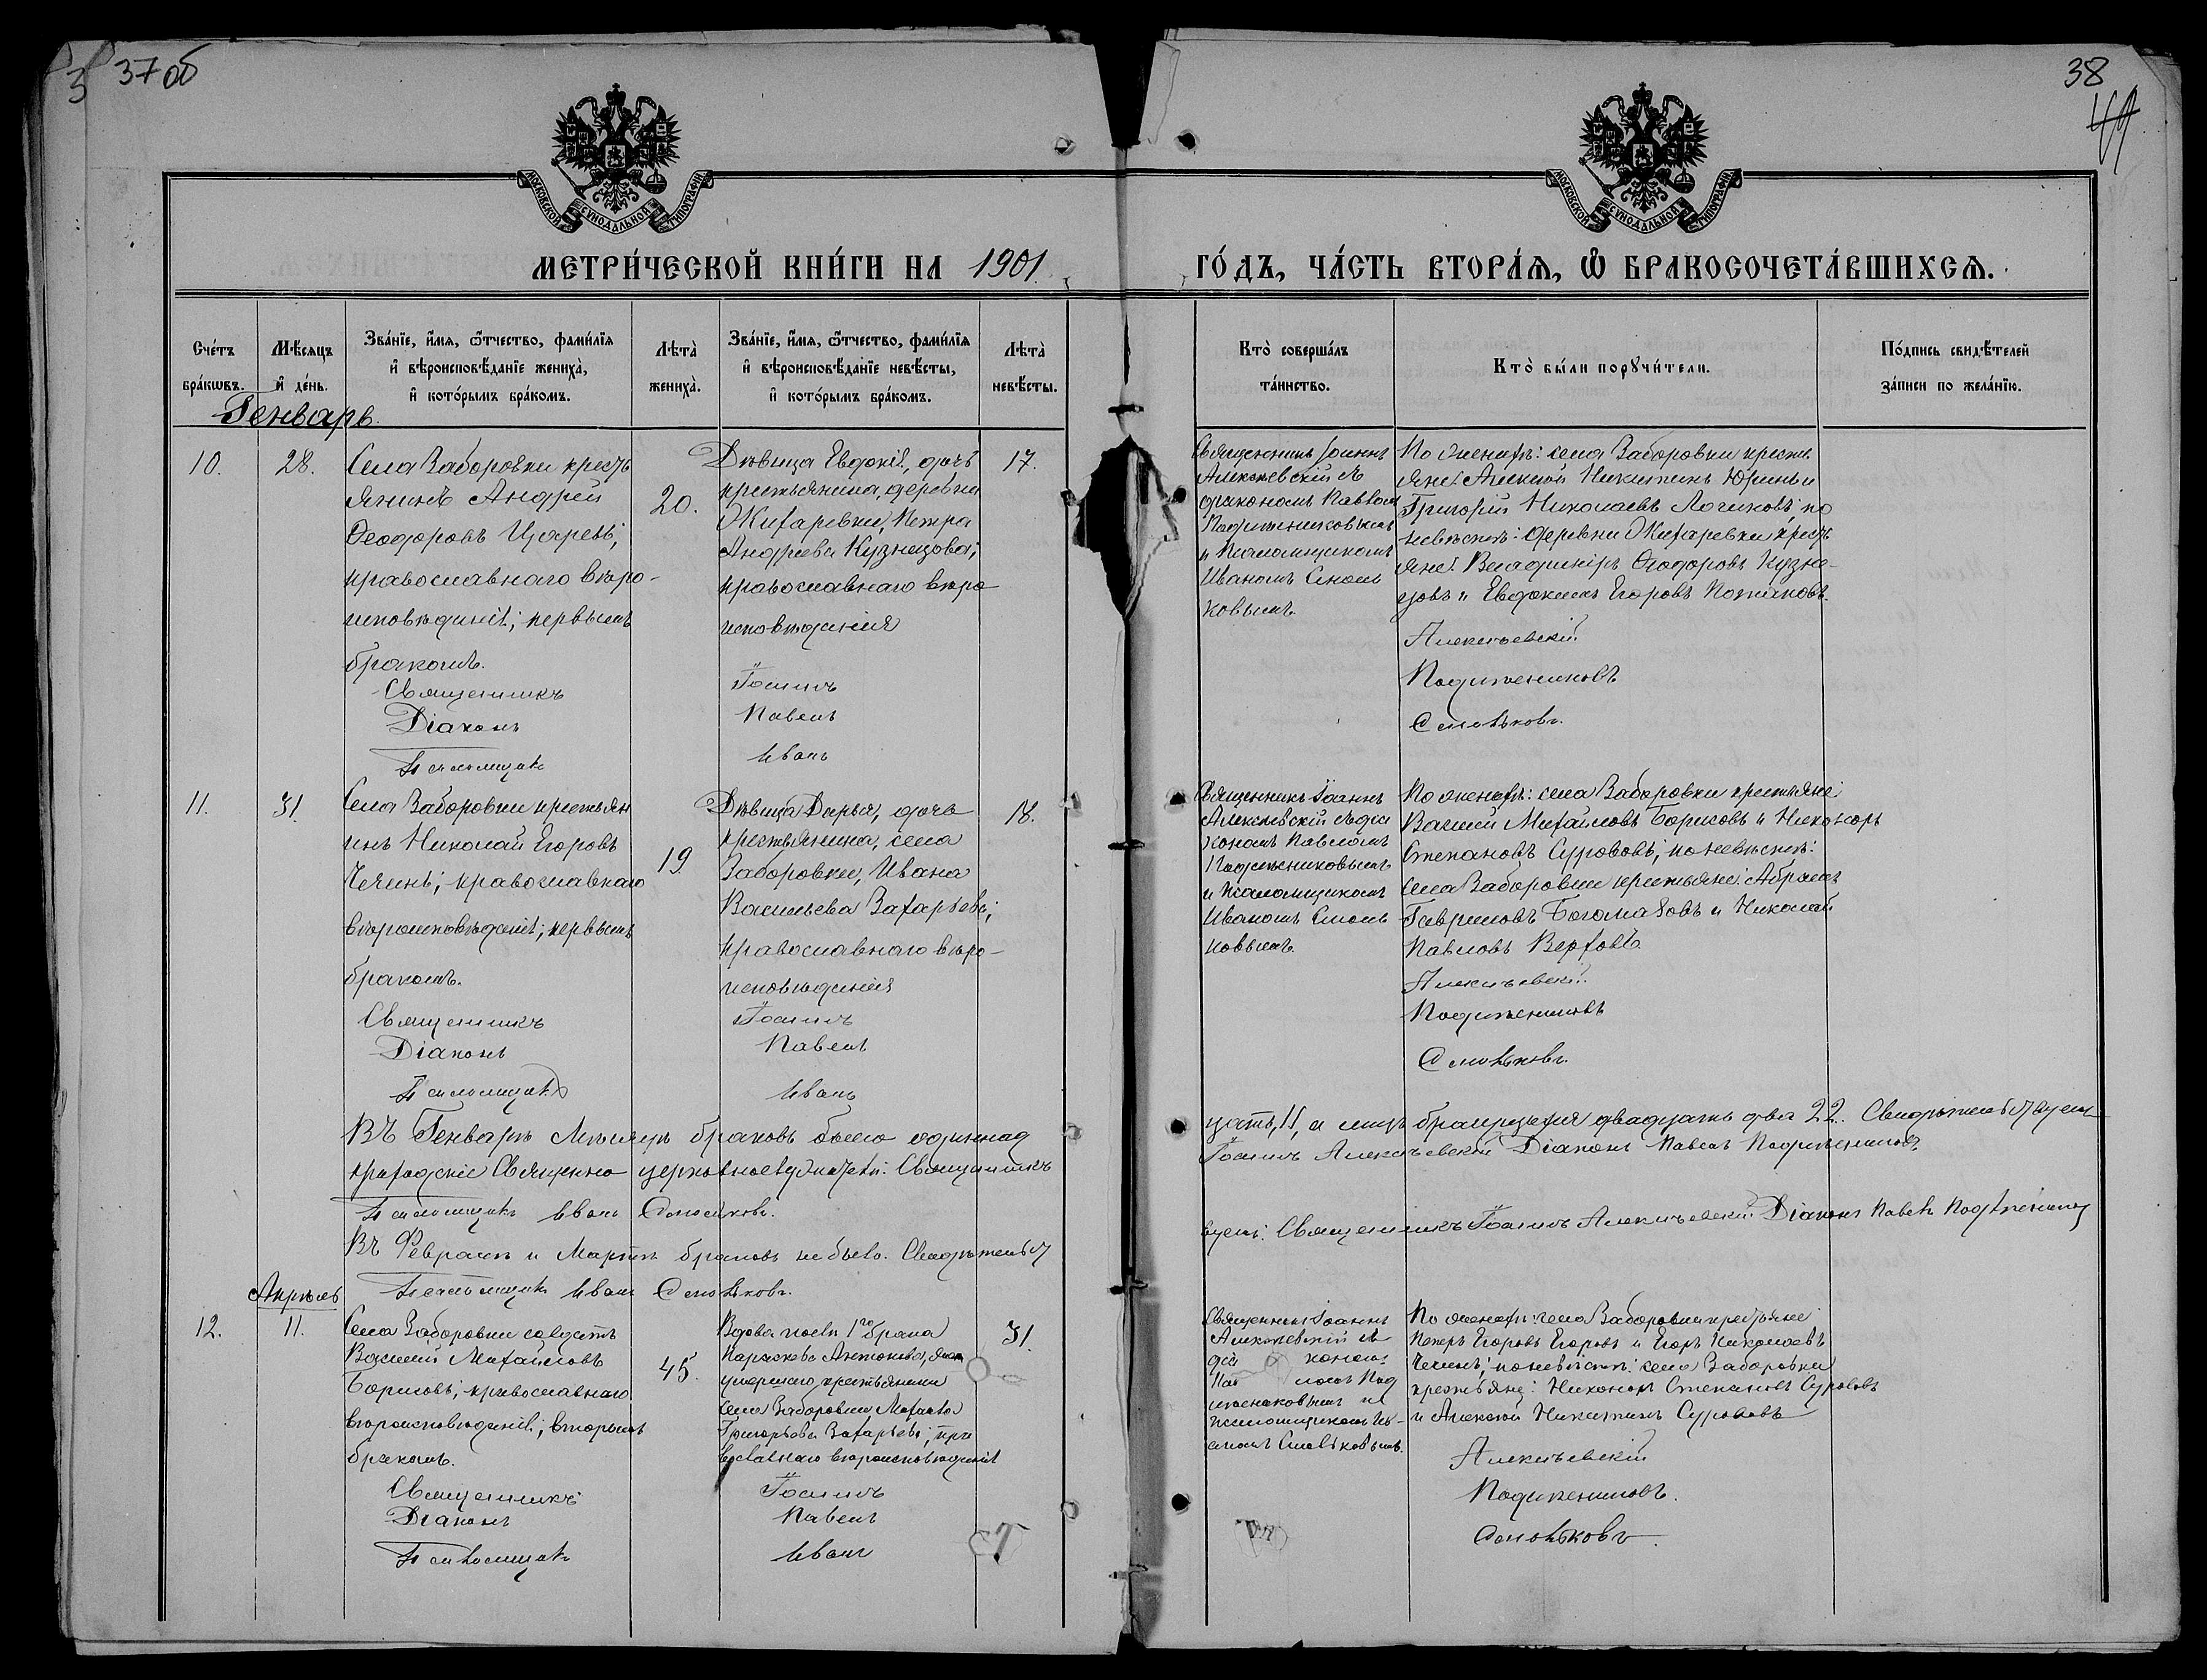 3 37 об
38
49
МОСКОВСКОЙ СѴНОДАЛЬНОЙ ТИПОГРАФІИ
МОСКОВСКОЙ СѴНОДАЛЬНОЙ ТИПОГРАФІИ
МЕТРИ́ЧЕСКОЙ КНИ́ГИ НА 1901
ГО́ДЪ, ЧА́СТЬ ВТОРА́Ѧ, Ѡ҆ БРАКОСОЧЕТА́ВШИХСѦ.
Сче́тъ
бра́кѡвъ.
Мѣ́сѧцъ
и҆ де́нь.
Зва́нїе, и҆́мѧ, ѻ҆́тчество, фами́лїѧ
и҆ вѣроисповѣ́данїе жениха̀,
и҆ кото́рымъ бра́комъ.
Лѣта̀
жениха̀.
Зва́нїе, и҆́мѧ, ѻ҆́тчество, фами́лїѧ
и҆ вѣроисповѣ́данїе невѣ́сты,
и҆ кото́рымъ бра́комъ.
Лѣта̀
невѣ́сты.
Кто̀ соверша́лъ
та́инство.
Кто̀ бы́ли порꙋчи́тели.
По́дпись свидѣ́телей
за́писи по жела́нїю.
Генварь.
10.
28.
Села Заборовки кресть
янинъ Андрей
Ѳеодоровъ Царевъ;
православнаго вѣро-
исповѣданія; первымъ
бракомъ.
Священникъ
Діаконъ
Псаломщикъ
20.
Дѣвица Евдокія, дочь
крестьянина, деревни
Жихаревки, Петра
Андреева Кузнецова;
православнаго вѣро
исповѣданія
Іоаннъ
Павелъ
Иванъ
17.
Священникъ Іоаннъ
Алексѣевскій съ
діакономъ Павломъ
Подъячениковымъ
и Псаломщикомъ
Иваномъ Смоль
ковымъ.
По женихѣ: села Заборовки кресть
яне: Алексѣй Никитинъ Юринъ и
Григорій Николаевъ Логиновъ; по
невѣстѣ: деревни Жихаревки кресть
яне: Владиміръ Ѳеодоровъ Кузне-
цовъ и Евдокимъ Егоровъ
Алексѣевскій
Смольковъ.
11.
31.
Села Заборовки крестьян
инъ Николай Егоровъ
Чечинъ; православнаго
вѣроисповѣданія; первымъ
бракомъ.
Священникъ
Діаконъ
Псаломщикъ
19.
Дѣвица Дарья, дочь
крестьянина, села
Заборовки, Ивана
Васильева Захарьева;
православнаго вѣро-
исповѣданія
Іоаннъ
Павелъ
Иванъ
18.
Священникъ Іоаннъ
Алексѣевскій съ діа
кономъ Павломъ
и Псаломщикомъ
Иваномъ Смоль
ковымъ.
По женихѣ: села Заборовки крестьяне:
Василій Михайловъ Борисовъ и Никоноръ
Степановъ Сурововъ; по невѣстѣ:
села Заборовки крестьяне: Абрамъ
Гавриловъ Богомазовъ и Николай
Павловъ Верховъ
Алексѣевскій
Смольковъ.
Въ Генварѣ Мѣсяцѣ браковъ было одиннад
цать, 11, а лицъ двадцать два 22. Свидѣтельствуем
Священно церковно Священникъ
Іоаннъ Алексѣевскій Діаконъ Павелъ
Псаломщикъ Иванъ Смольковъ.
Въ Февралѣ и Мартѣ браковъ не было. Свидѣтельст
вуемъ: Священникъ Іоаннъ Алексѣевскій Діаконъ Павелъ
Псаломщикъ Иванъ Смольковъ.
Апрѣль
12.
11.
Села Заборовки солдатъ
Василій Михайловъ
Борисовъ; православнаго
вѣроисповѣданія; вторымъ
бракомъ.
Священникъ
Діаконъ
Псаломщикъ
45.
Вдова послѣ 1го брака
Параскева Антонова, жена
умершаго крестьянина
села Заборовки
Григорьева Захарьева; пра
вославнаго вѣроисповѣданія
Іоаннъ
Павелъ
Иванъ
31.
Священникъ Іоаннъ
Алексѣевскій съ
діа кономъ
Пав ломъ Под
псаломщикомъ Ив-
аномъ Смольковымъ.
По женихѣ: села Заборовки крестьяне:
Петръ Егоровъ Егоровъ и Егоръ Николаевъ
Чечинъ; по невѣстѣ: села Заборовки
крестьяне: Никоноръ Степановъ Сурововъ
и Алексѣй Никитинъ Сурововъ
Алексѣевскій
Смольковъ.